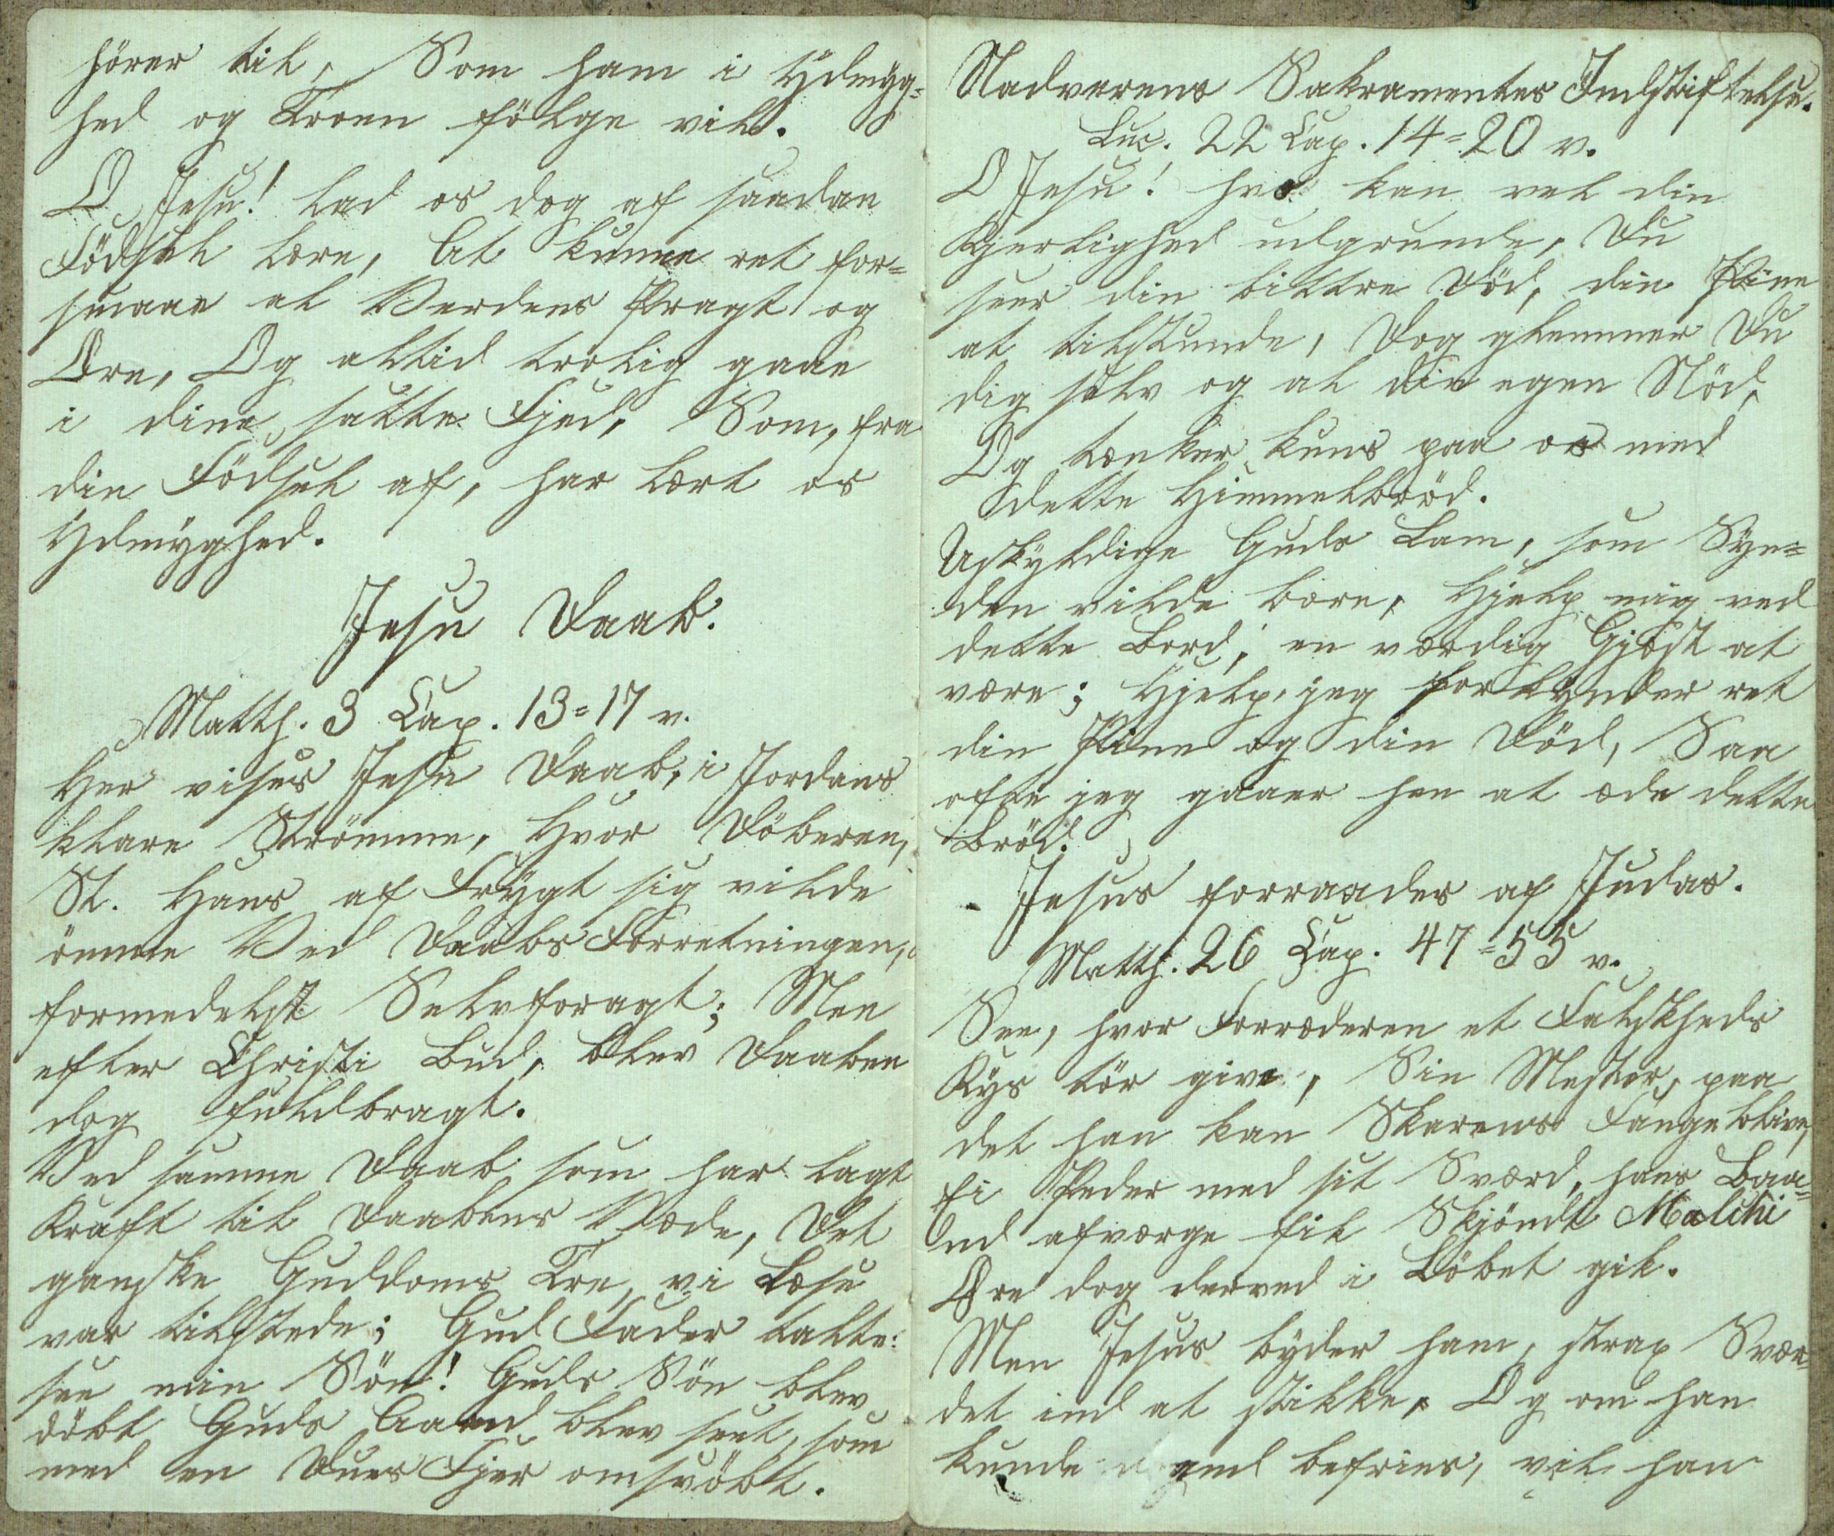 hörer til, Som ham i Ydmyg=
hed og Troen fölge vil.
O Jesu! lad os dog af saadan
Födsel lære, At kunne ret for=
smaae al Verdens Pragt og
Ære, Og altid trolig gaae
i dine satte Fjed, Som, fra
din Födsel af, har lært os
Ydmyghed.
Jesu Daab.
Matth. 3 Cap. 13=17 v.
Her vises Jesu Daab, i Jordans
klare Strömme, Hvor Döberen,
St. Hans af Frygt sig vilde
ömme Ved Daabs Forretningen,
formedelst Selvforagt; Men
efter Christi Bud, blev Daaben
dog fuldbragt.
Ved samme Daab som har lagt
Kraft til Daabens Væde, Det
ganske Guddoms Tre, vi læse
var tilstede; Gud Fader talte:
see min Sön! Guds Sön blev
döbt Guds Aand blev seet, som
med en Dues Fjer omsvöbt.
Nadverens Sakramentes Indstiftelse.
Luc. 22 Cap. 14=20 v.
O Jesu! hvo kan vel din
Kjerlighed udgrunde, Du
seer din bittre Död, din Pine
at tilstunde, Dog glemmer Du
dig selv og al din egen Nöd,
Og tænker kuns paa os med
dette Himmelbröd.
Uskyldige Guds Lam, som Syn=
den vilde bære, Hjelp mig ved
dette Bord, en værdig Gjæst at
være; Hjelp, jeg forkynder ret
din Pine og din Död, Saa
ofte jeg gaaer hen at æde dette
Bröd.
Jesus forraades af Judas.
Matth. 26 Cap. 47=55 v.
See, hvor Forræderen et Falskheds
Kys tör give, Sin Mester, paa
det han kan Skarens Fange blive,
Ei Peder med sit Sværd, hans Baa=
nd afværge fik Skjöndt Malchi
Øre dog derved i Löbet gik.
Men Jesus byder ham, strax Svær
det ind at stikke, Og om han
kunde end befries, vil han